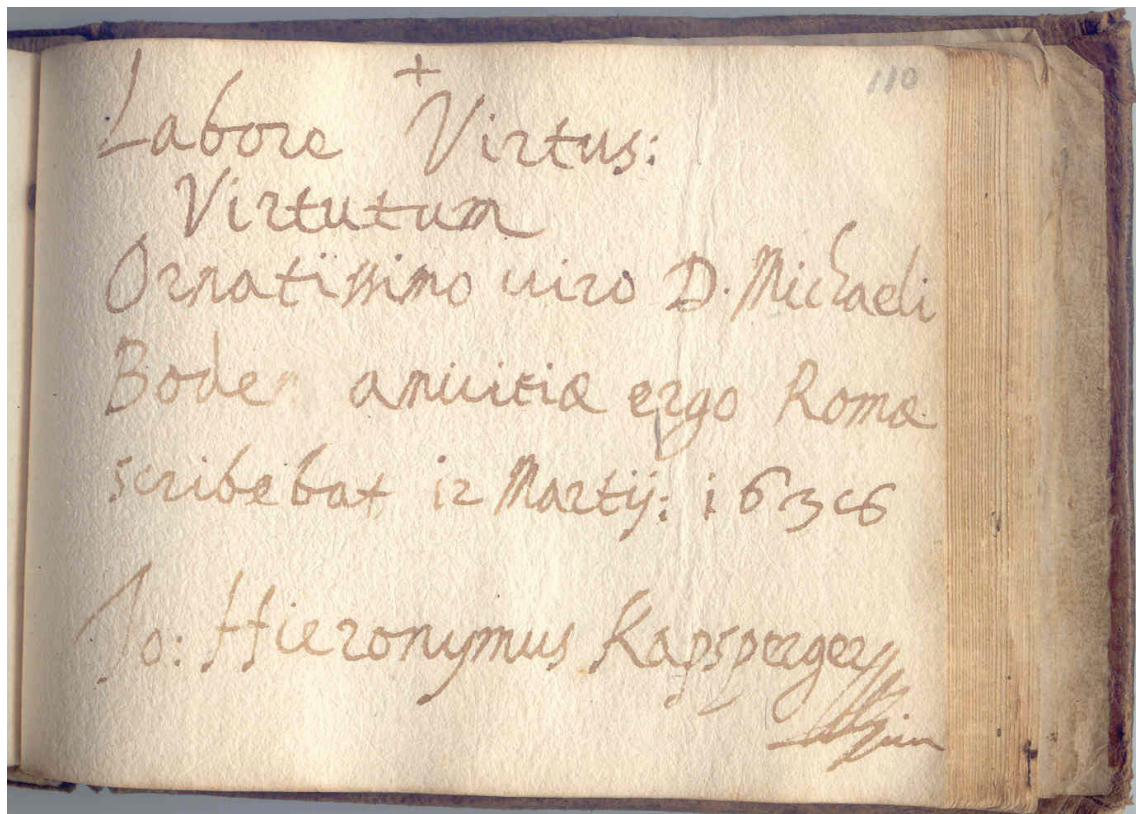 110
+
Labore Virtus:
Virtutum
Ornatissimo uiro D. Michaeli
Boden amicitiæ ergo Romæ
scribebat 12 Martij: 1636
Jo: Hieronymus Kapsperger